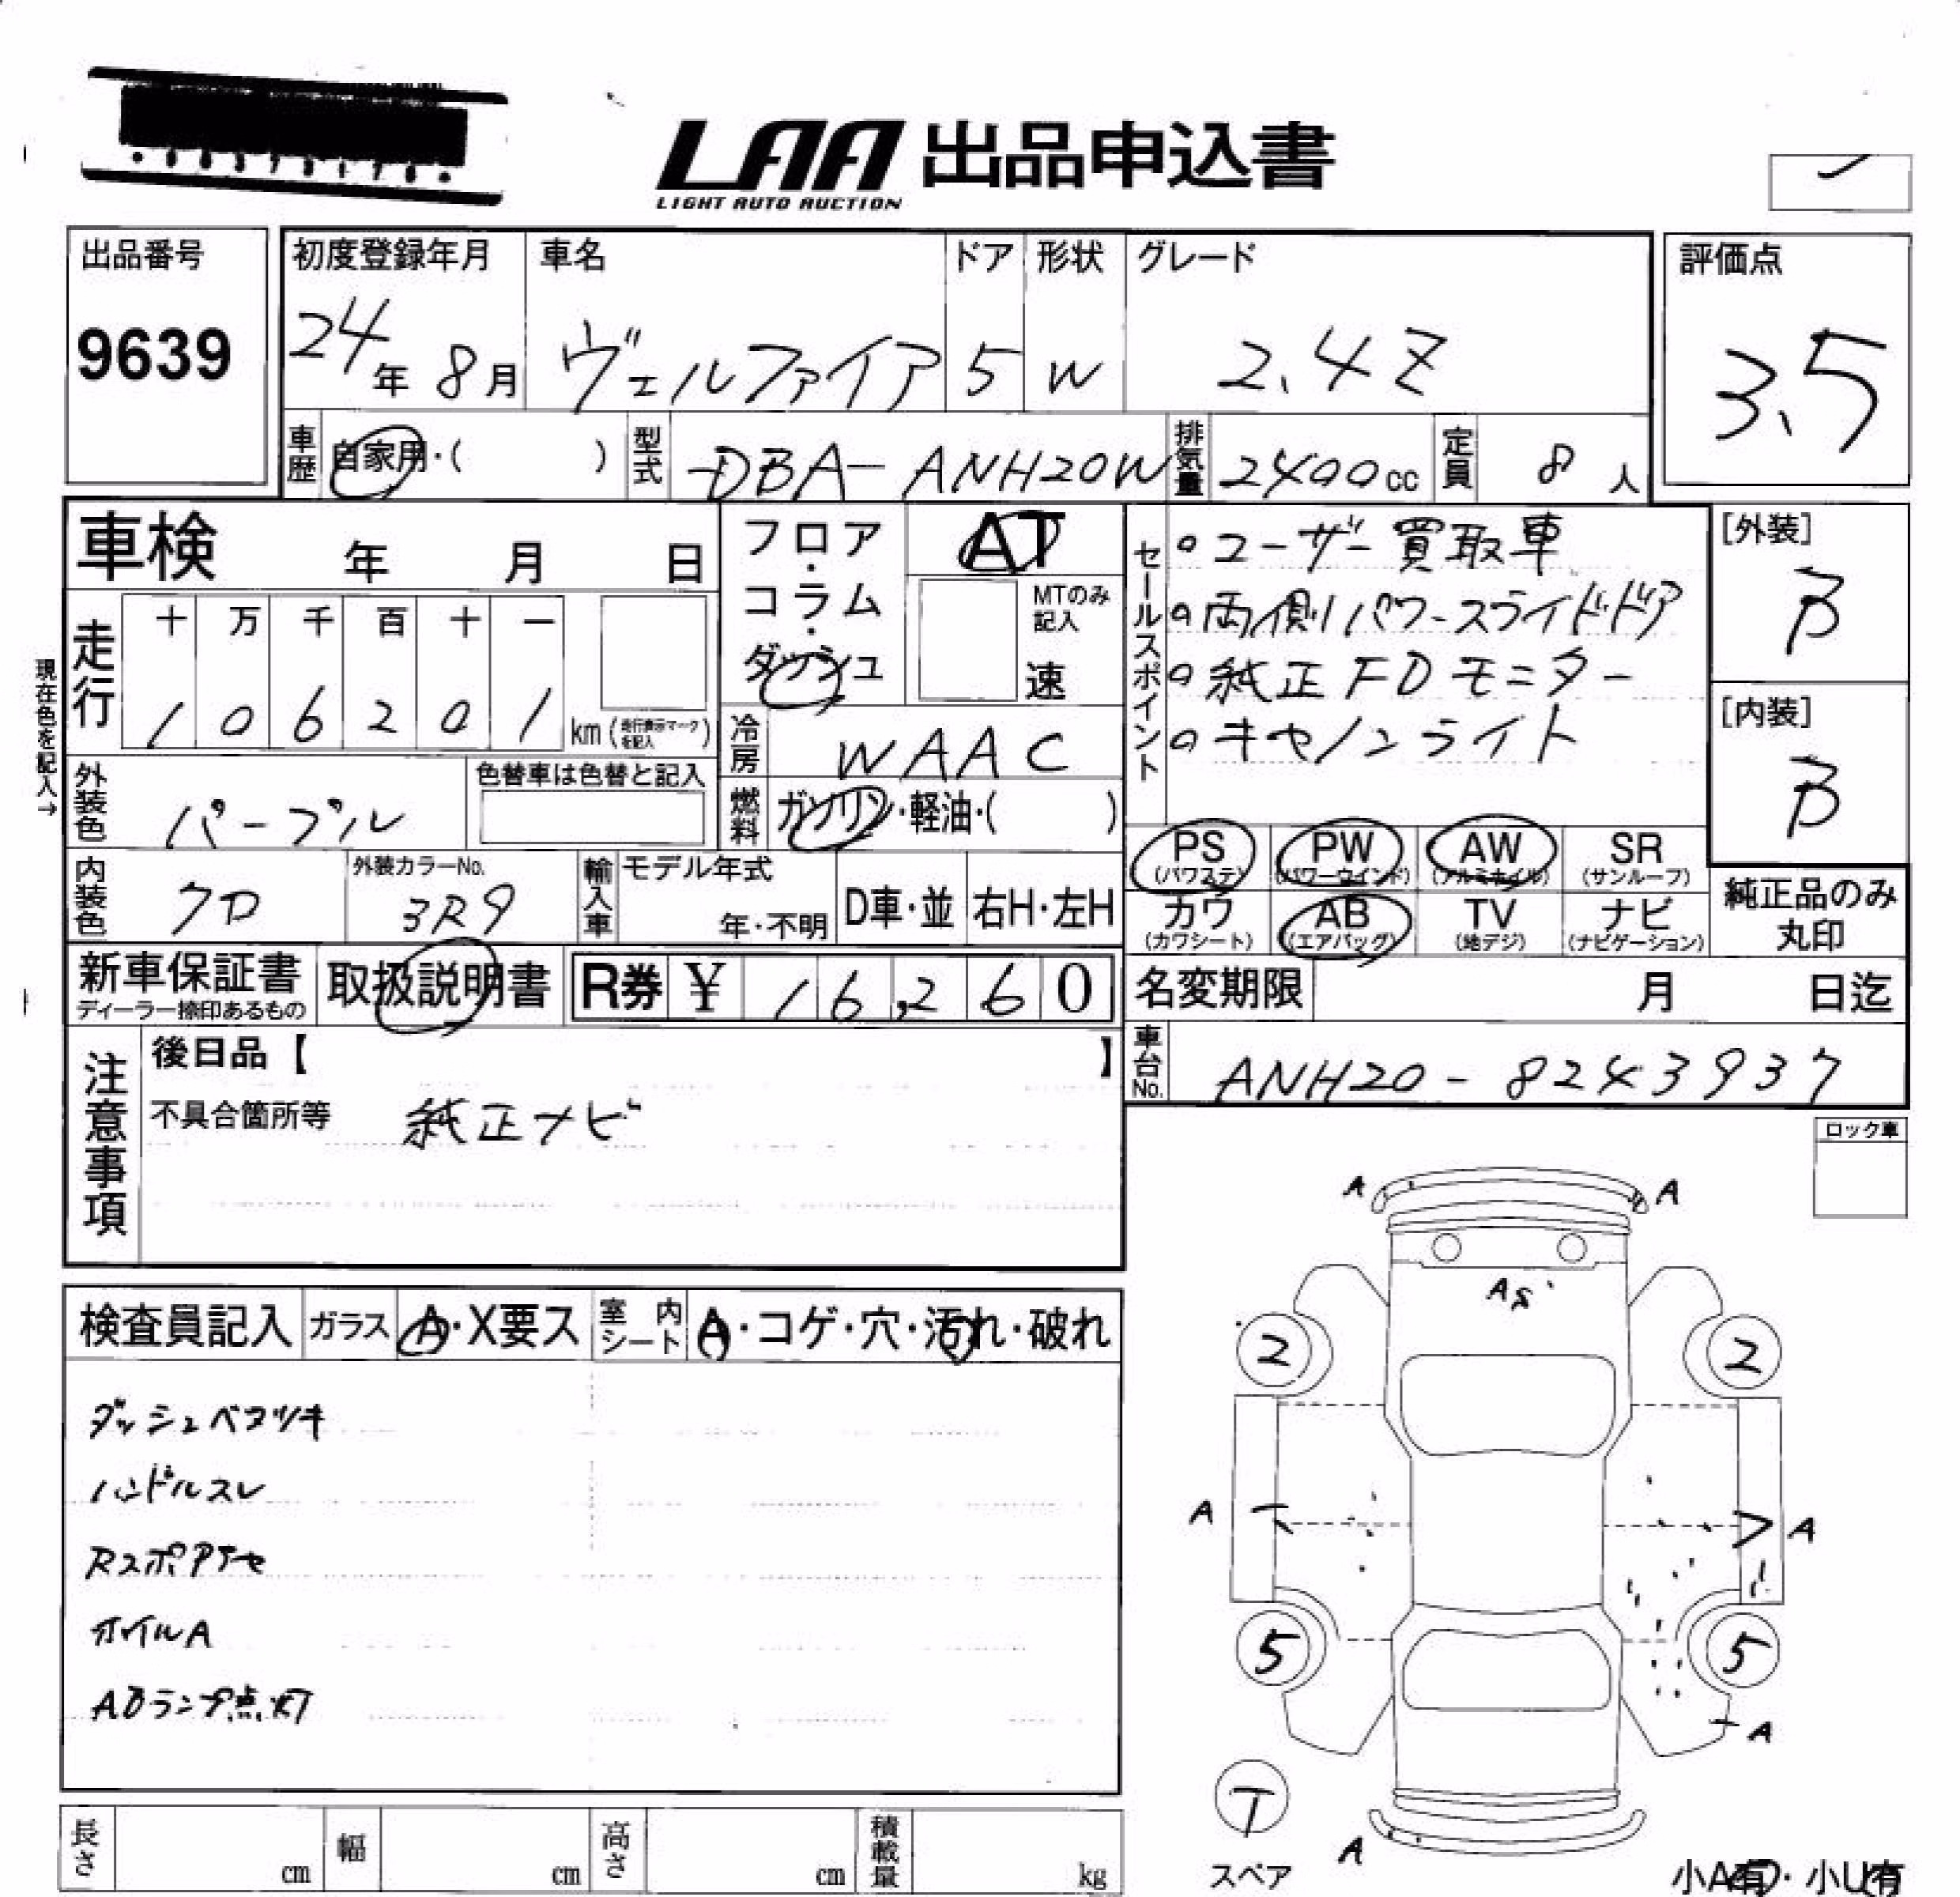 LAA 出品申込書
LIGHT AUTO AUCTION
出品番号
9639
初度登録年月
24年 8月
車名
ヴェルファイア
ドア
5
形状
W
グレード
2.4Z
評価点
3.5
車歴
自家用・( )
型式
DBA-ANH20W
排気量
2400cc
定員
8人
車検 年 月 日
フロア・コラム・ダッシュ
AT
MTのみ記入
速
セールスポイント
。ユーザー買取車
。両側パワースライドドア
。純正FDモニター
。キセノンライト
[外装]
B
[内装]
B
現在色を記入→
走行
十 万 千 百 十 一
1 0 6 2 0 1 km (走行表示マークを記入)
冷房
WAAC
外装色
パープル
色替車は色替と記入
燃料
ガソリン・軽油・( )
PS (パワステ)
PW (パワーウインド)
AW (アルミホイル)
SR (サンルーフ)
内装色
クロ
外装カラーNo.
3R9
輸入車
モデル年式
年・不明
D車・並
右H・左H
カワ (カワシート)
AB (エアバッグ)
TV (地デジ)
ナビ (ナビゲーション)
純正品のみ丸印
新車保証書
ディーラー捺印あるもの
取扱説明書
R券 ¥ 16,260
名変期限 月 日迄
車台No.
ANH20-8243937
注意事項
後日品【 】
不具合箇所等 純正ナビ
ロック車
検査員記入
ガラス A・X要ス
室内シート A・コゲ・穴・汚れ・破れ
ダッシュベタツキ
ハンドルスレ
Rスポアナセ
ホイルA
ABランプ点灯
A A
A
2 2
A A
5 5
A
T
スペア
A
長さ cm
幅 cm
高さ cm
積載量 kg
小A有・小U有